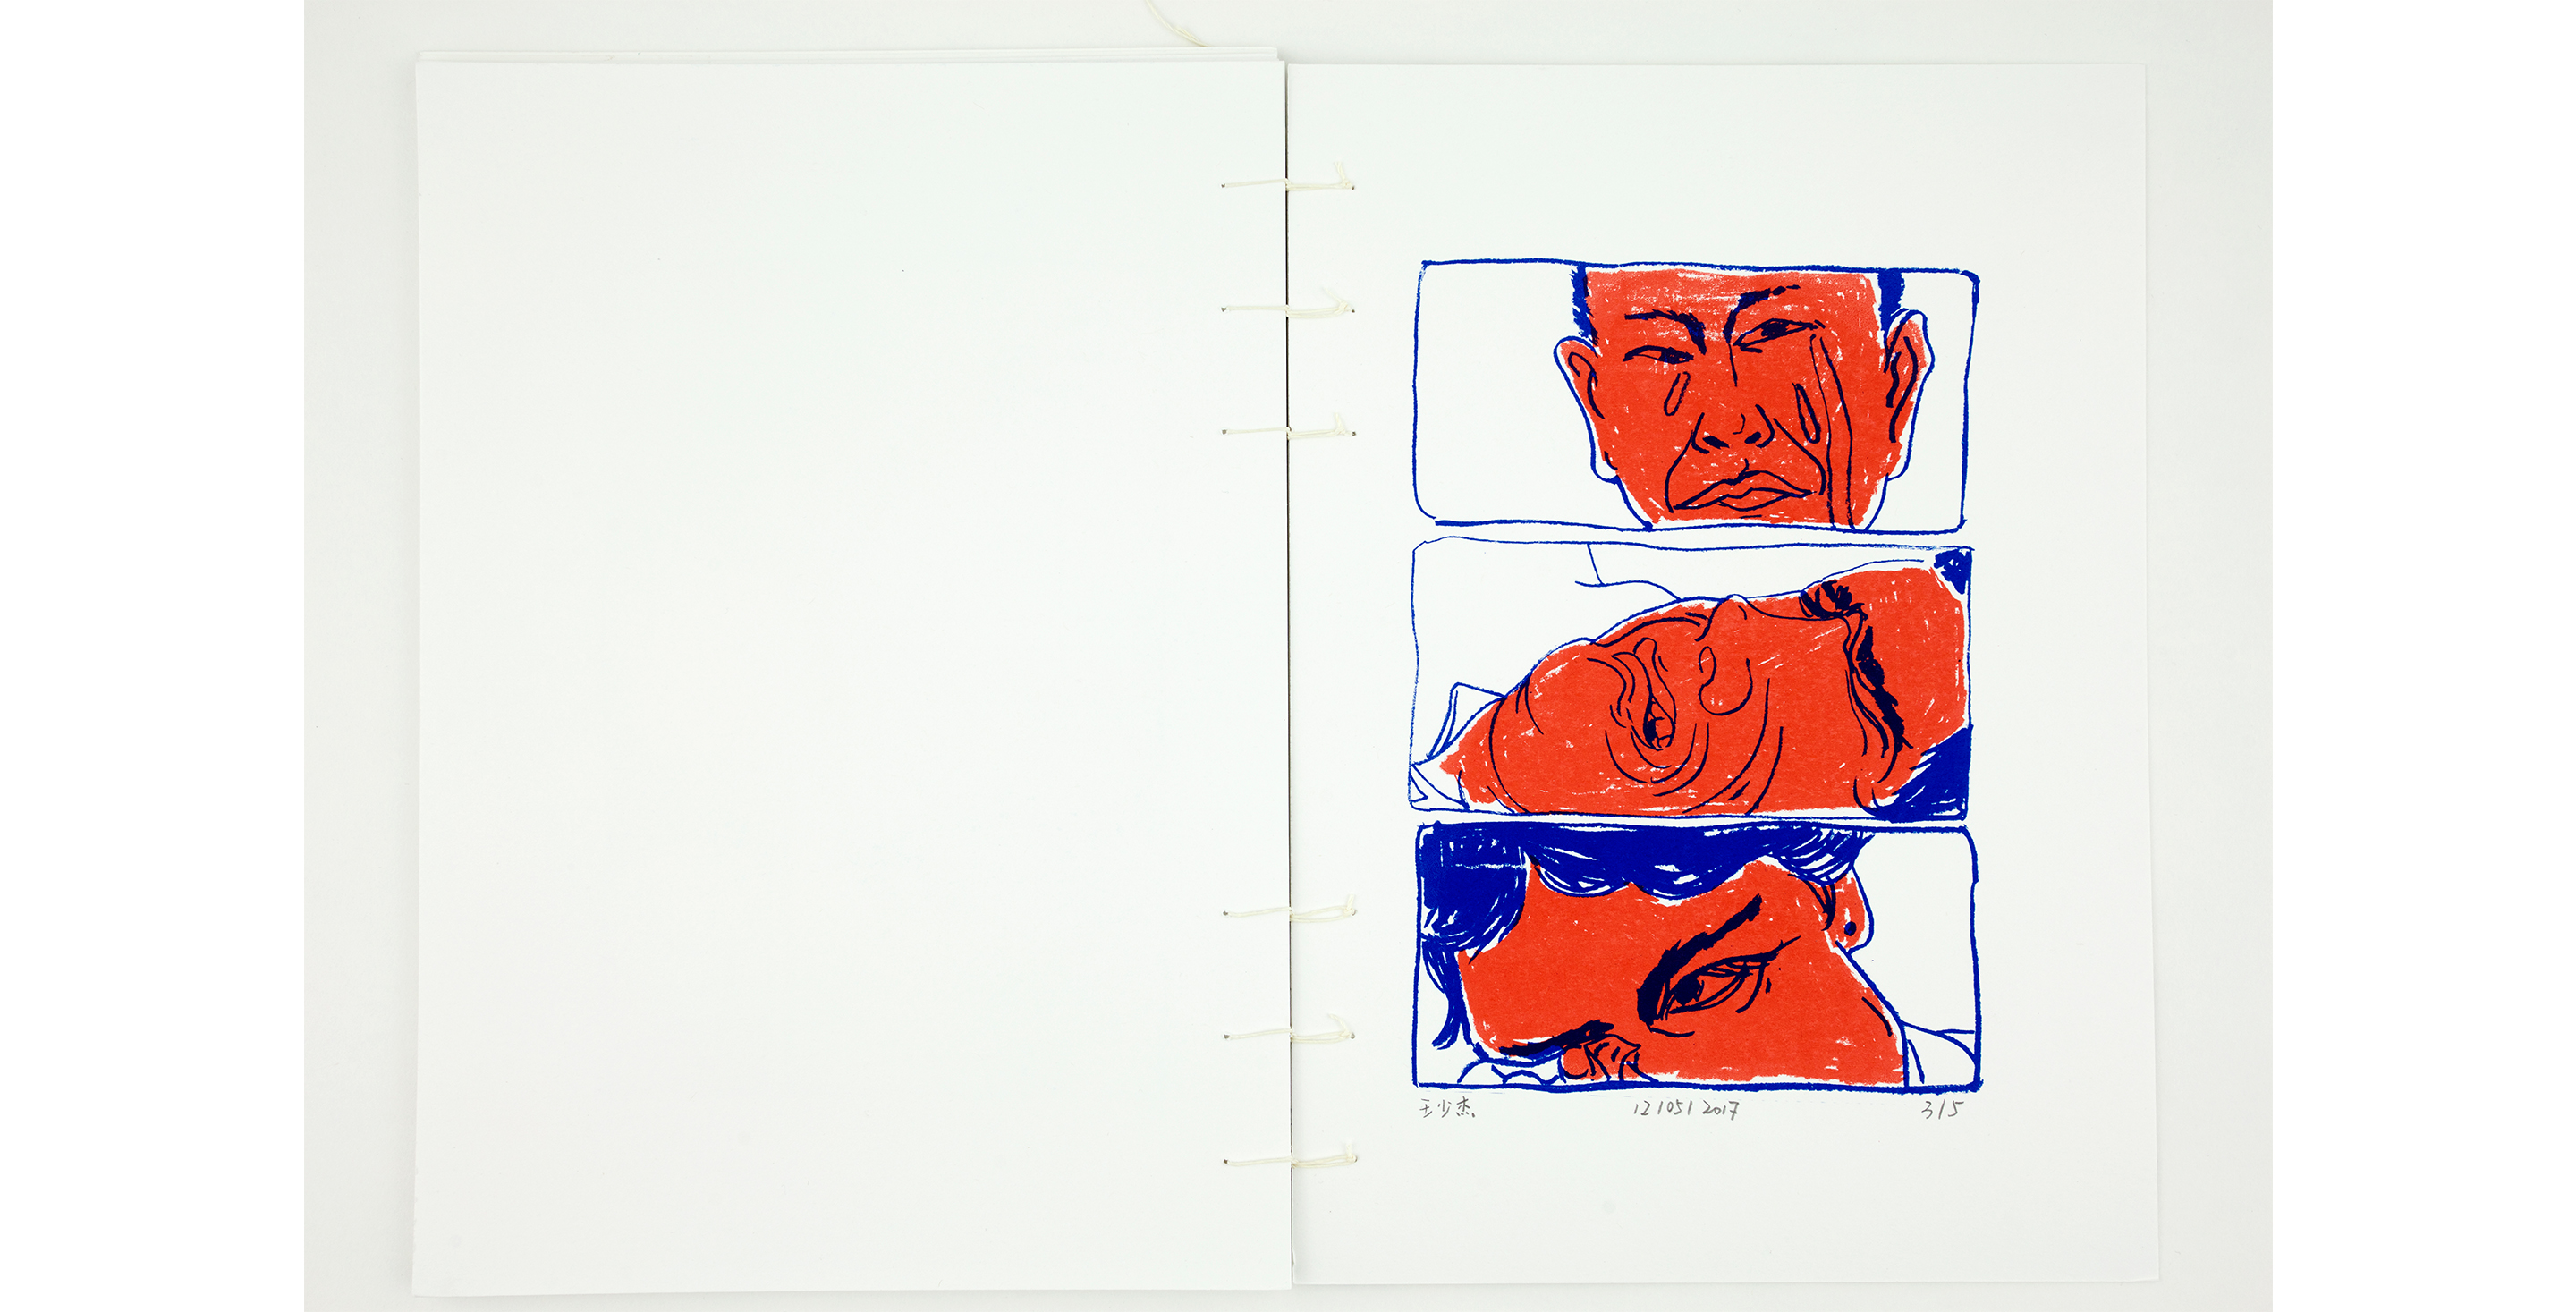 王少杰
12/05/2017
3/5